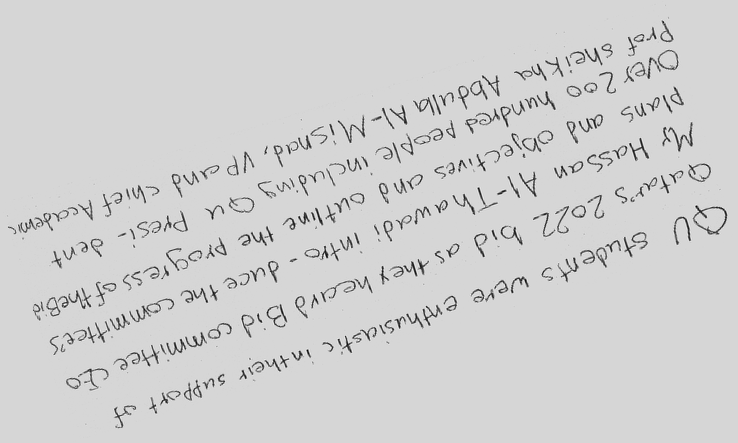 QU students were enthusiastic in their support of
Qatar's 2022 bid as they heard Bid committee CEO
Mr Hassan Al-Thawadi intro-duce the committee's
plans and objectives and outline the progress of the Bid
Over 200 hundred people including QU Presi-dent
Prof Sheikha Abdulla Al-Misnad, VP and chief Academic